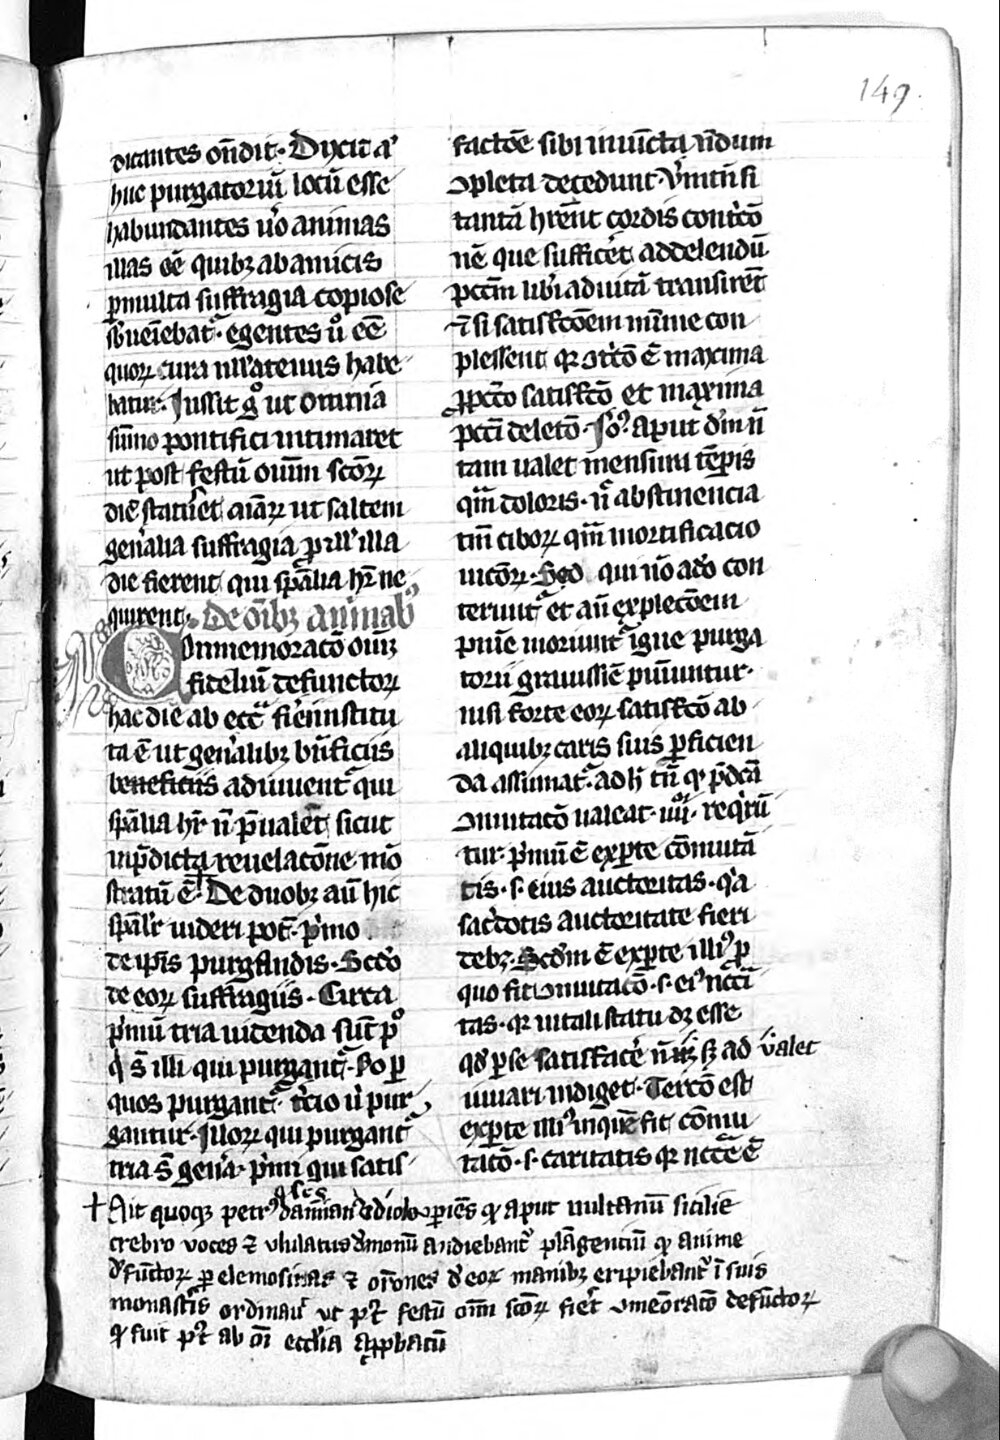 149.
dicantes oñdit. Dixit aͥ
huc purgatoriū locū esse
habundantes ůo animas
illas eē quibꝫ ab amicis
ꝑmulta suffragia copiose
sb̓ueīebat᷑. egentes ů eē
quoꝝ cura nll̓atenus habe
batur. Jussit gͦ ut omnia
sūmo pontifici intimaret
ut post festū oīum sc̄oꝝ
diē statuet aīaꝝ ut saltem
gen̓alia suffragia ꝓ ill̓ illa
die fierent qui sp̄alia hr̄e ne
quirent. De oībꝫ animabꝰ
Onmemoratō oīuꝫ
fideliū defunctoꝝ
hac die ab ecc̄a fieri institu
ta ē ut gen̓alibꝫ bn̄ficiis
beneficiis adiuvent᷑ qui
sp̄alia hr̄e n̄ p̄ualent sicut
in p̄dicta reuelatōne mō
stratū ē. † De duobꝫ aūt hic
sp̄alr̓ uideri pot̄. p̓mo
de ip̄is purgandis. Scd̓o
de eoꝝ suffragiis. Circa
p̓mū tria uidenda sūt pͦ
qͥ s̄t illi qui purgant᷑. 2o ꝑ
quos purgant᷑. t̓cio u̇ pur
gantur. Illoꝝ qui purgant᷑
tria s̄t gen̓a. p̓mi qui satis
factōē sibi iniūcta nōdum
ↄpleta decedunt. Verūtn̄ si
tantā hr̄ent cordis cont̓cō
nē que suffic̓et ad delendū
pctm̄ lib̓i ad uitā transirēt
⁊ si satisfc̄oēm minime con
plessent qꝛ ↄt̓cō ē maxima
ꝓ pctō satisfcō et maxima
pcti deletō. Jo̓. Aput dm̄ n̄
tam ualet mensura tēpis
qm̄ doloris. n̄ abstinencia
tm̄ ciboꝝ qm̄ mortificacio
uicioꝝ. Sed qui ůo adeo con
teruntᷣ et an̄ expletōem
pn̄ie moriunt᷑ igne purga
torii grauissīe puniuntur.
nisi forte eoꝝ satisfcō ab
aliquibꝫ caris suis ꝑficien
da assumat᷑. ad h̓ tn̄ qͥ p̄dcā
ↄmutatō ualeat. iiiiͦʳ. req̓rū
tur. p̓mū ē ex ꝑte cōmutā
tis. s. eius auctoritas. qꝛ a
sac̓dotis auctoritate fieri
debꝫ. Scd̓m ē ex ꝑte illiꝰ ꝓ
quo fit ↄmutatō. s. eiꝰ nc̄ci
tas. qꝛ in tali statu dꝫ esse
qd̓ ꝑ se satisfac̓e n̄ ualet sꝫ ad
iuuari indiget. Terciū est
ex ꝑte illiꝰ in quē fit cōmu
tatō. s. caritatis qꝛ ncc̄e ē
† Ait quoqꝫ petrꝰ damiani ... ꝑiēs qͥ aput uultanū sicilie
crebro voces ⁊ vlulatus d̓monū audiebant᷑ plāgentiū qͥ anime
d̓fūctoꝝ ꝑ elemosinas ⁊ or̄ones d̓ eoꝝ manibꝫ eripiebant᷑ ī suis
monast̓iis ordinauͥt vt pꝰt festū oīm sc̄oꝝ fiet ↄmeōratō defūctoꝝ
qͥ fuit pꝰt ab oī eccl̓ia apꝓbatū